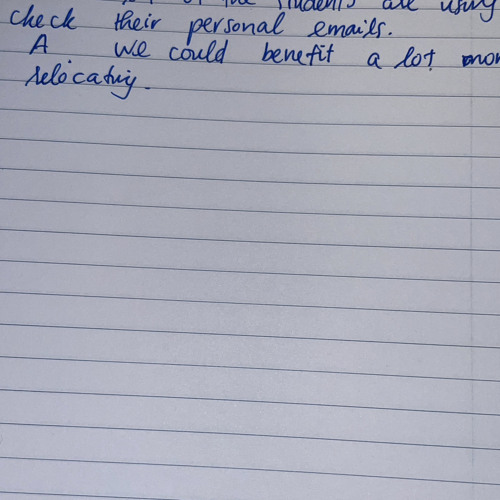 of the students are using
check their personal emails.
A. We could benefit a lot mor
relocating.